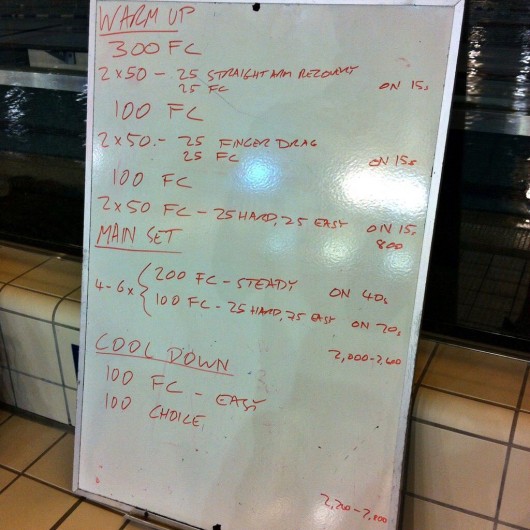 WARM UP
300 FC
2 x 50 - 25 STRAIGHT ARM RECOVERY
25 FC ON 15s
100 FC
2 x 50 - 25 FINGER DRAG
25 FC ON 15s
100 FC
2 x 50 FC - 25 HARD, 25 EASY ON 15s
800
MAIN SET
4-6 x { 200 FC - STEADY ON 40s
100 FC - 25 HARD, 75 EASY ON 20s
2,000-2,600
COOL DOWN
100 FC - EASY
100 CHOICE
2,200-2,800